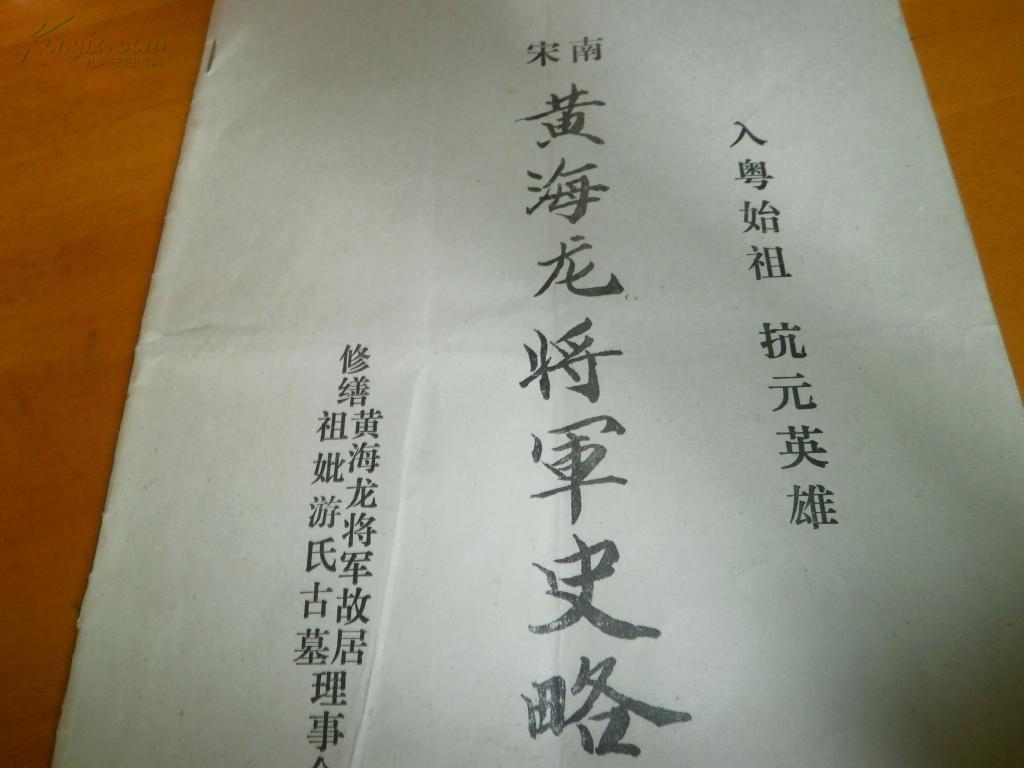 入粤始祖 抗元英雄
南宋
黄海龙将軍史略
修缮黄海龙将军故居
祖妣游氏古墓
理事会
Kongfz.com
孔夫子旧书网